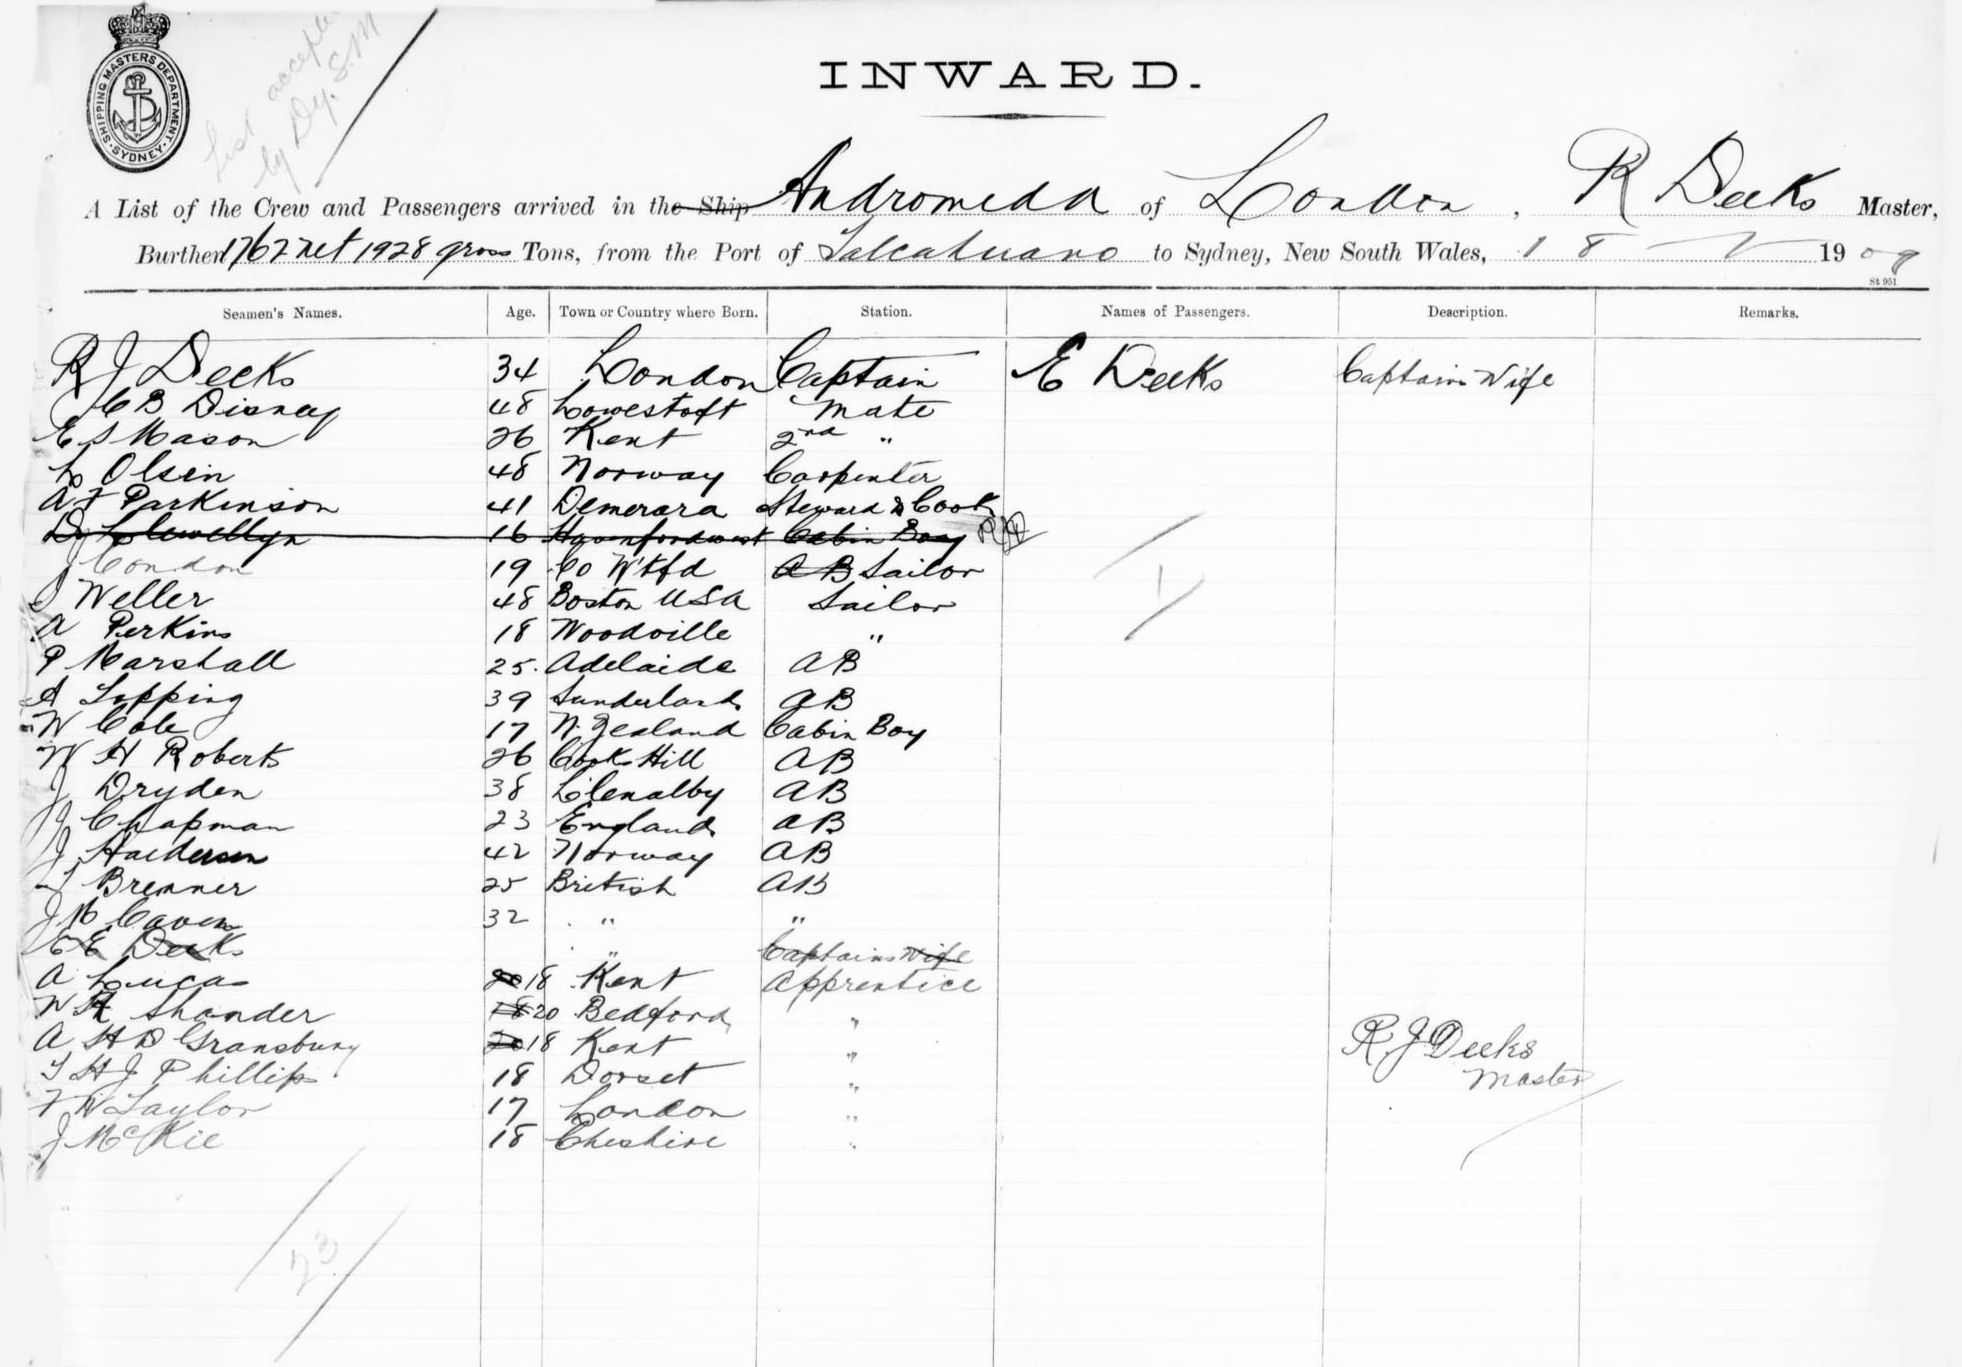 SHIPPING MASTERS DEPARTMENT
SYDNEY
List accepted
by Dy. S.M
INWARD.
A List of the Crew and Passengers arrived in the Ship Andromeda of London, R Deeks Master,
Burthen 1762 net 1928 gross Tons, from the Port of Talcahuano to Sydney, New South Wales, 18 1909
St 951
Seamen's Names. Age. Town or Country where Born. Station. Names of Passengers. Description. Remarks.
R J Deeks 34 London Captain E Deeks Captains Wife
C B Disney 48 Lowestoft Mate
E S Mason 26 Kent 2nd "
L Olsen 48 Norway Carpenter
A F Parkinson 41 Demerara Steward & Cook
D J Llewellyn 16 Haverfordwest Cabin Boy
J Condon 19 Co Wtfd AB Sailor
S Weller 48 Boston USA Sailor
A Perkins 18 Woodville "
P Marshall 25 Adelaide AB
A Topping 39 Sunderland AB
W Cole 17 N. Zealand Cabin Boy
W H Roberts 26 Cooks Hill AB
J Dryden 38 Llenalby AB
J Chapman 23 England AB
J Haldersen 42 Norway AB
T Brenner 25 British AB
J McCaven 32 " "
E E Deeks " Captains Wife
A Lucas 20 18 Kent Apprentice
W A Shander 18 20 Bedford "
A H D Gransbury 20 18 Kent "
T H J Phillips 18 Dorset "
F W Taylor 17 London "
J McKie 18 Cheshire "
1
R J Deeks
Master
23